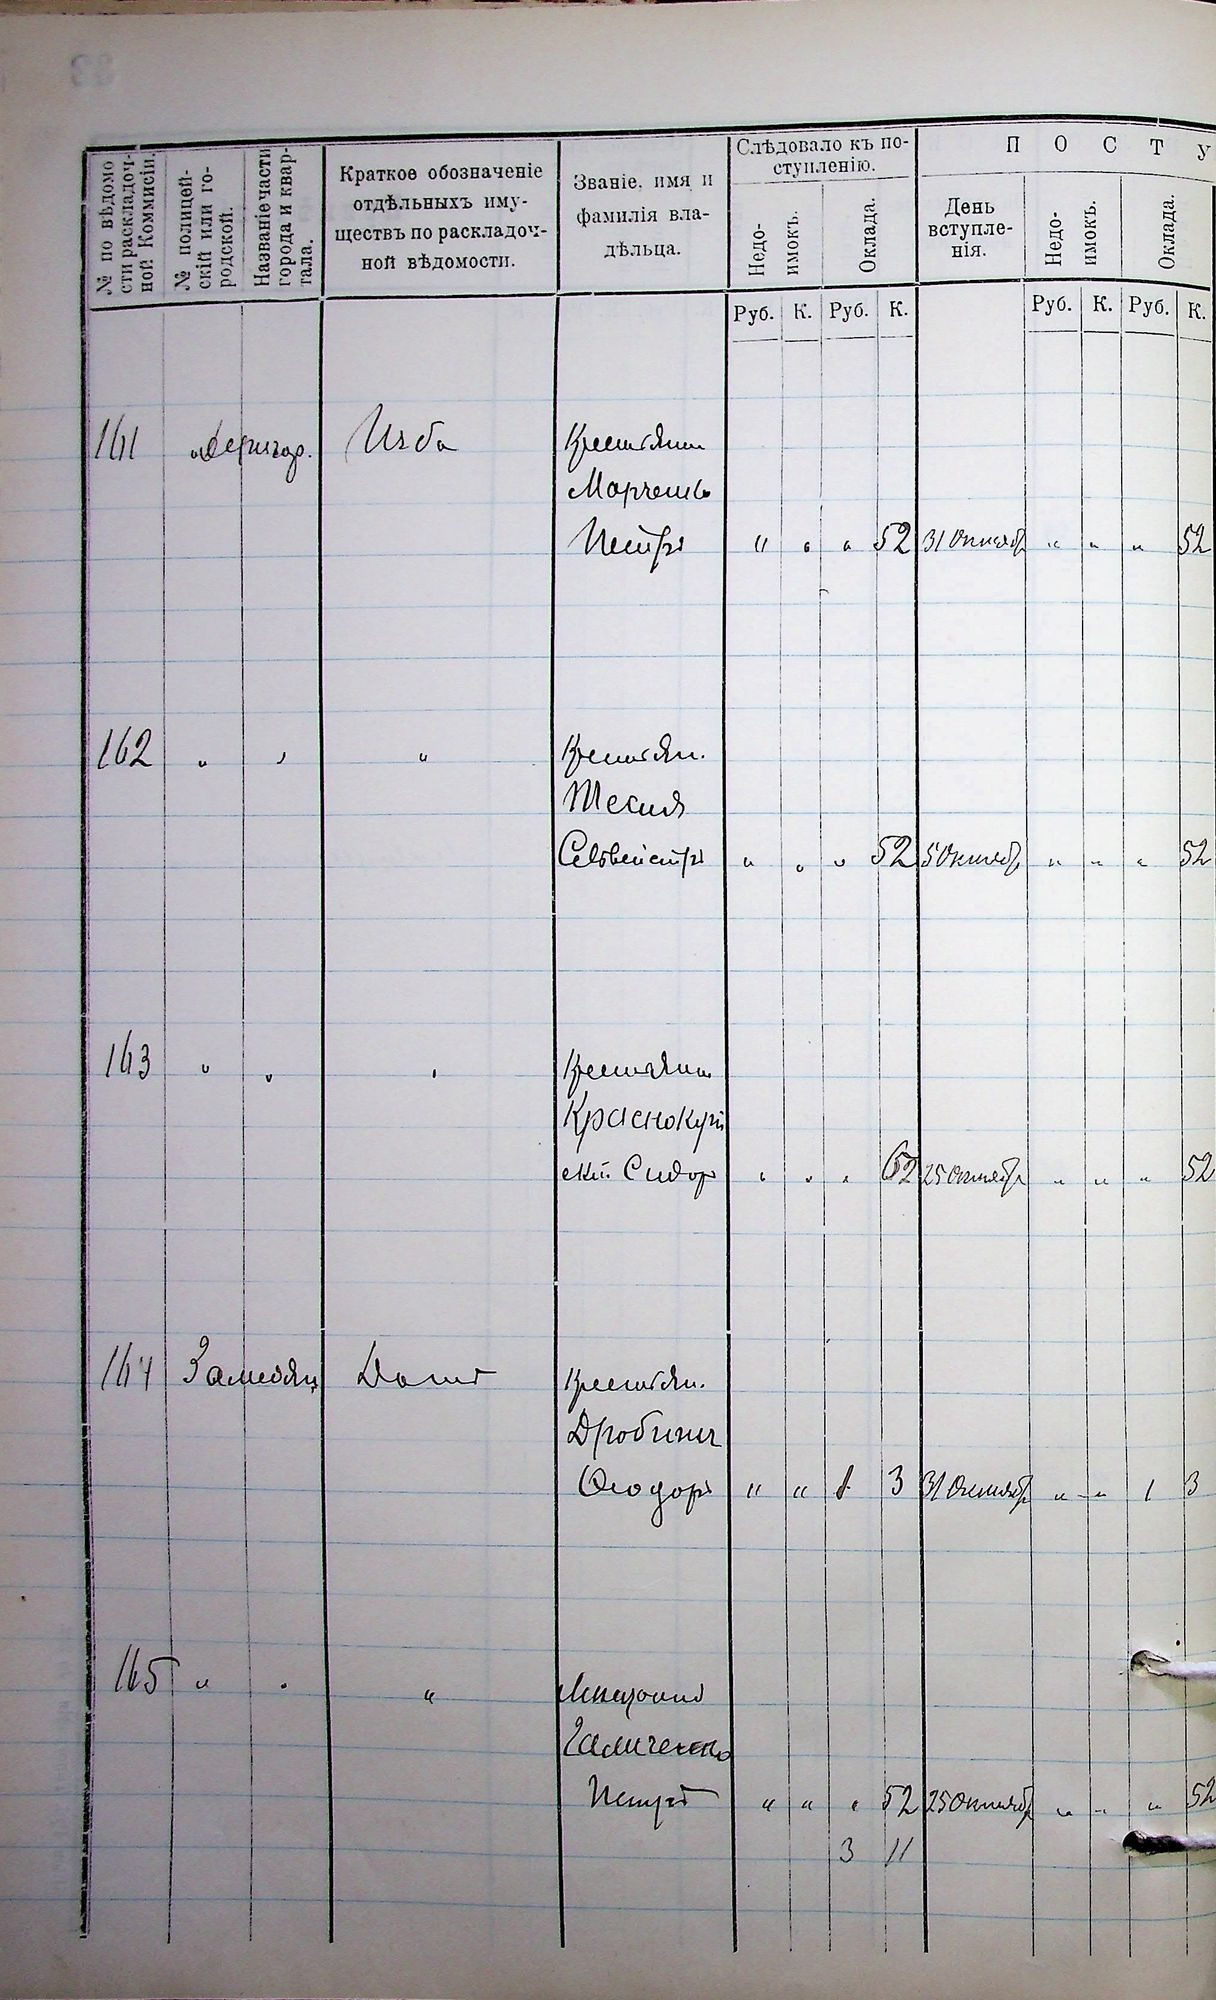 № по вѣдомо
сти раскладоч-
ной Коммисіи.
№ полицей-
скій или го-
родской.
Названіе части
города и квар-
тала.
Краткое обозначеніе
отдѣльныхъ иму-
ществъ по раскладоч-
ной вѣдомости.
Званіе, имя и
фамилія вла-
дѣльца.
Слѣдовало къ по-
ступленію.
Недо-
имокъ.
Оклада.
П О С Т У
День
вступле-
нія.
Недо-
имокъ.
Оклада.
Руб. К. Руб. К. Руб. К. Руб. К.
161 Изба Крестьянин
Марченко
Петръ " " " 52 31 Октябр " " " 52
162 " " " Крестьян.
Сильвестръ " " " 52 5 Октябр " " " 52
163 " " " Крестьянин
Краснокут
скій Сидор " " " 52 25 Октябр " " " 52
164 Домъ Крестьян.
Ѳеодоръ " " 1 3 31 Октябр " " 1 3
165 " " "
Галиченко
Петръ " " " 52 25 Октябр " " " 52
3 11